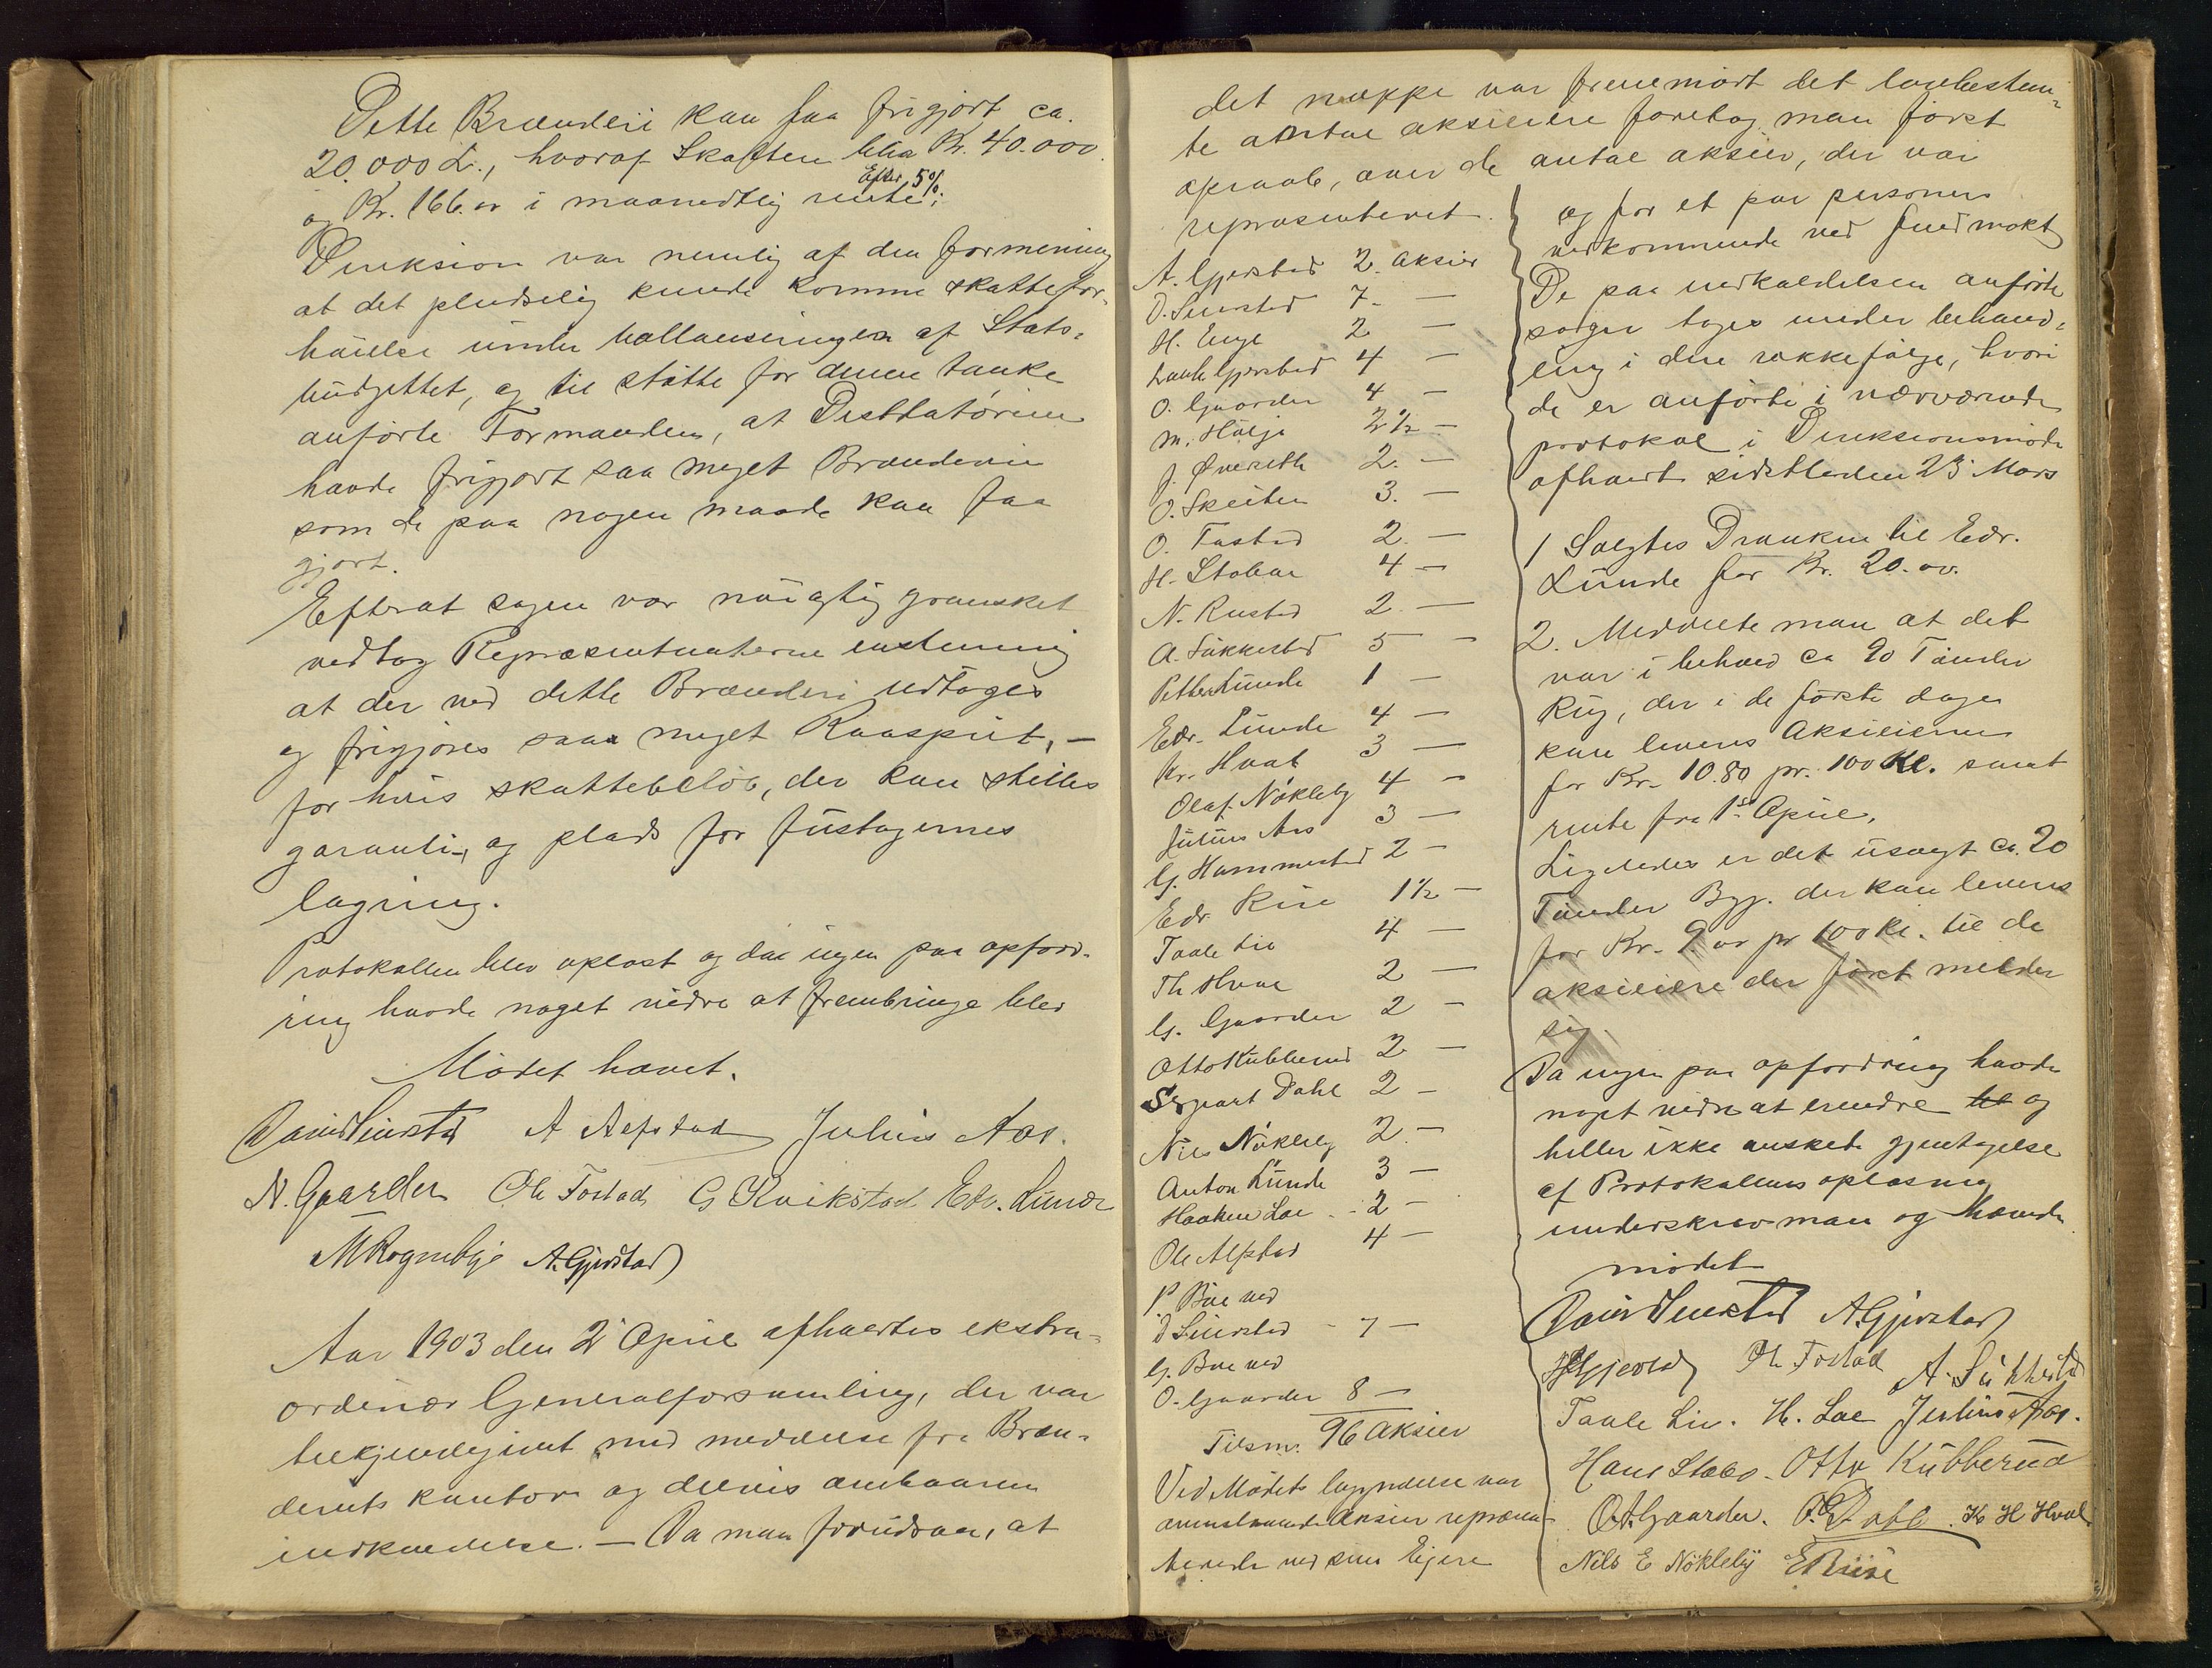 Dette Brænderi kan faa frigjort ca.
20.000 L., hvoraf Skatten blir Kr. 40.000.
og Kr. 166.00 i maanedtlig rente Efter 5%;
Direksion var nemlig af den formening
at det pludselig kunde komme skattefor-
høielse under ballanseringen af Stats-
budgettet, og til støtte for denne tanke
anførte Formanden, at Destlatørerne
havde frigjort saa meget Brænderie
som de paa nogen maade kan faa
gjort.
Efterat sagen var nøiagtig gransket
vedtog Repræsentanterne enstemmig
at der ved dette Brænderi udtages
og frigjøres saa meget Raaspirit, —
for hvis skattebeløb, der kan stilles
garanti, og plads for fustagernes
lagring.
Protokollen blev oplæst og da ingen paa opford-
ring havde noget videre at frembringe blev
Mødet hævet.
David Seierstad A Alfstad Julius Aas.
N. Gaarder Ole Fostad G Kvikstad Edv. Lunde
M Rognebye A. Gjerstad
Aar 1903 den 2 April afholdtes ekstra-
ordinær Generalforsamling, der var
bekjendtgjort med meddelse fra Bræn-
deriets kontor og delvis ombaaren
indkaldelse. — Da man forudsaa, at
det neppe var fremmødt det lovbestem-
te antal aksieiere foretog man først
opraab, over de antal aksier, der var
repræsenteret.
A. Gjerstad 2. aksier
D. Seierstad 7. —
H. Enge 2 —
Gjerstad 4 —
O. Gaarder 4 —
M. Høije 2½ —
J. Øverseth 2. —
O. Skeiten 3. —
O. Fostad 2. —
H. Stabo 4 —
N. Rustad 2. —
A. Sukkestad 5 —
Petter Lunde 1 —
Edv. Lunde 4 —
Kr. Hval 3 —
Olaf Nøkleby 4 —
Julius Aas 3 —
G. Hammerstad 2 —
Edv. Riise 1½ —
Taale Lie 4 —
Th Hval 2 —
G. Gaarder 2 —
Otto Kubberud 2 —
Sigvart Dahl 2 —
Nils Nøkleby 2. —
Anton Lunde 3 —
Haaken Loe 2 —
Ole Alfstad 4 —
P. Bue ved
D Seierstad - 7 —
G. Bue ved
O. Gaarder 8 —
Tilsm. 96 Aksier
Ved Mødets begyndelse var
ovenstaaende Aksier repræsen-
terede ved sine Eiere
og for et par personers
vedkommende ved fuldmakt
De paa indkaldelsen anførte
sager toges under behand-
ling i den rækkefølge, hvori
de er anførte i nærværende
protokol i Direksionsmøde
afholdt sidstleden 23 Mars
1 Solgtes Dranken til Edv.
Lunde for Kr. 20.00.
2. Meddelte man at det
var i behold ca 90 Tønder
Rug, der i de første dager
kan leveres Aksieierne
for Kr. 10.80 pr. 100 Kl. samt
rente fra 1st April.
Ligeledes er det usolgt ca. 20
Tønder Byg. der kan leveres
for Kr. 9.00 pr 100 Kl. til de
aksieiere der først melder
sig.
Da ingen paa opfordring havde
noget videre at erindre og
heller ikke ønskede gjentagelse
af Protokollens oplæsning
underskrev man og hævede
mødet
David Seierstad A. Gjerstad
Ole Fostad A. Sukkestad
Taale Lie. H. Loe Julius Aas.
Hans Stabo. Otto Kubberud
O. A. Gaarder. Dahl. K H Hval
Nils E Nøkleby E Riise